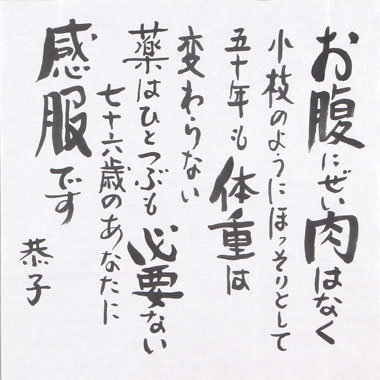 お腹にぜい肉はなく
小枝のようにほっそりとして
五十年も体重は
変わらない
薬はひとつぶも必要ない
七十六歳のあなたに
感服です
恭子